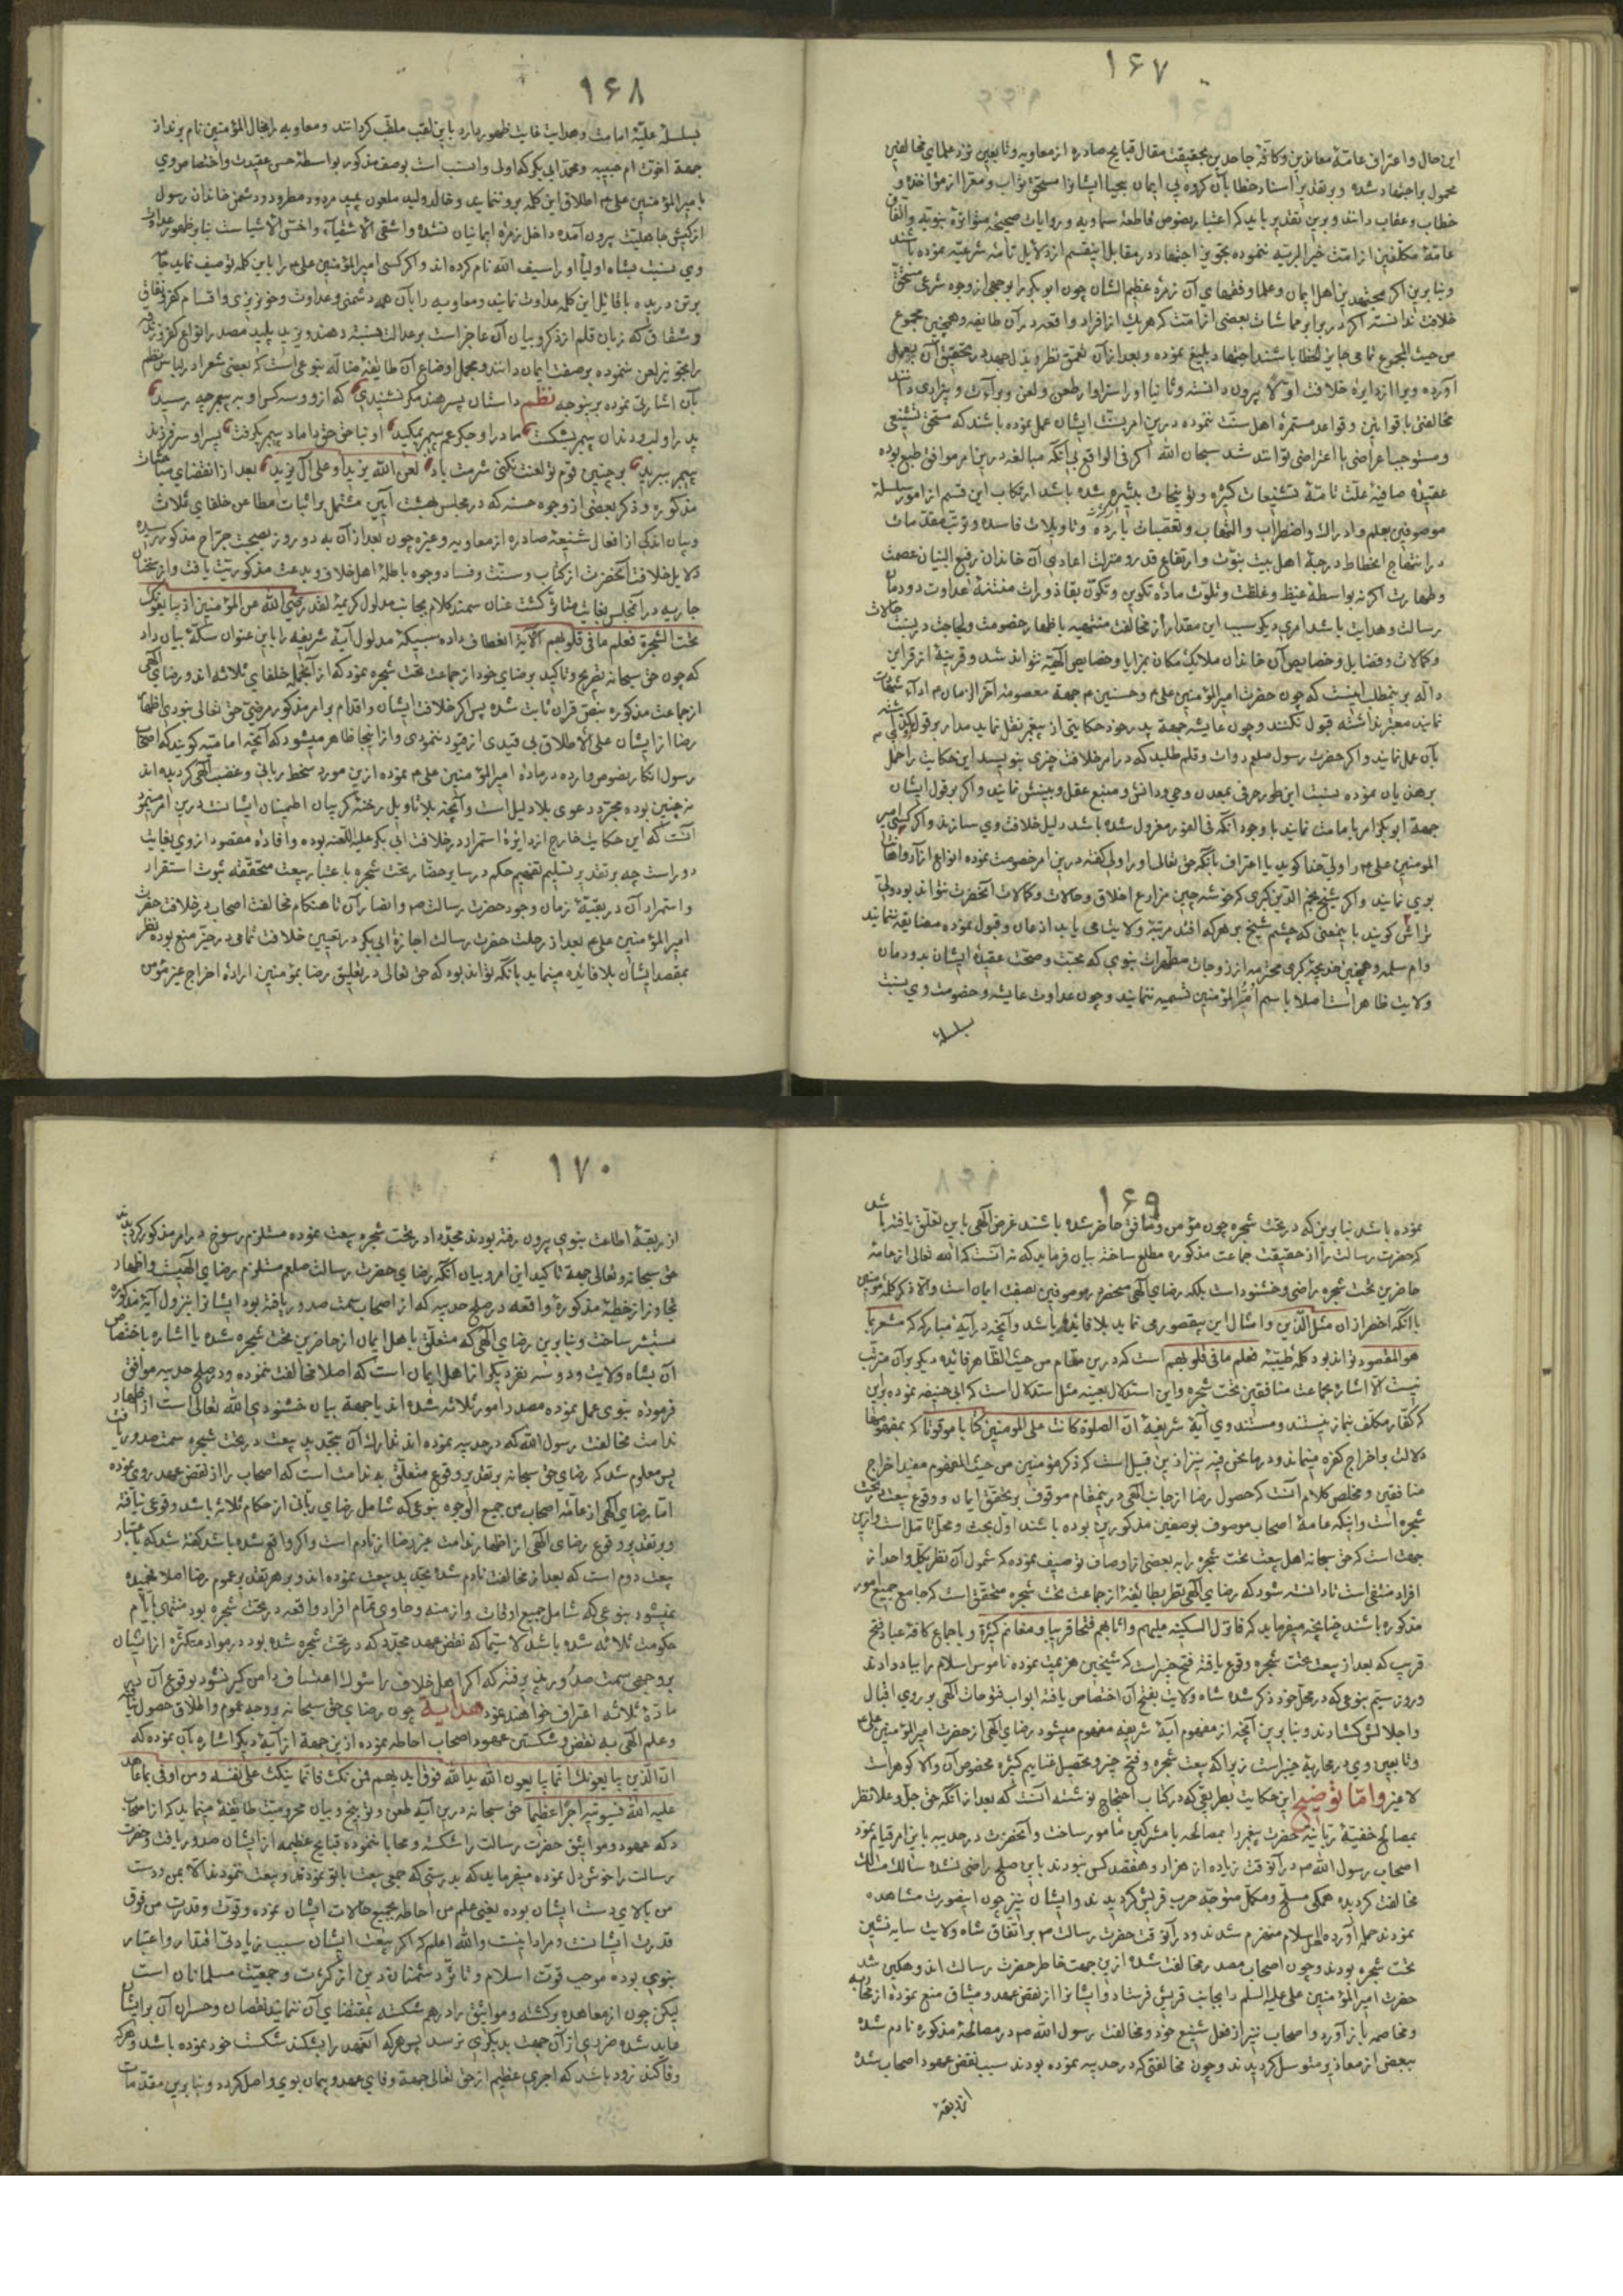 ۱۶۷
این حال و اعتراف عامهٔ معاندین و کافهٔ جاحدین بحقیقت مقال قبایح صادره از معاویه و تابعین نزد علمای مخالفین
محمول بر اجتهاد شده و بر تقدیر اسناد خطا بآن کروه بی ایمان بیحیا ایشانرا مستحق ثواب و مبرا از مؤاخذه و
خطاب و عقاب دانند و برین تقدیر باید که اعتبار نصوص قاطعهٔ سماویه و روایات صحیحهٔ متواترهٔ نبویه و اتفاق
عامهٔ مکلفین از امت خیر البریه ننموده تجویز اجتهاد در مقابل اینقسم از دلایل تامهٔ شرعیه نموده باشند
و بنا برین اکر مجتهدین اهل ایمان و علما و فقهای آن زمرهٔ عظیم الشان چون ابو بکر را بوجهی از وجوه شرعی مستحق
خلافت ندانسته
من حیث المجموع تمامی جایز الخطا باشند اجتهاد بلیغ نموده و بعد از آن تعمق نظر و بذل جهد در تحقیق آن بعمل
آورده ویرا از دایرهٔ خلافت اولا بیرون دانسته و ثانیا او را سزاوار طعن و لعن و براءت و بیزاری دانند
مخالفتی با قوانین و قواعد مستمرهٔ اهل سنت ننموده درین امر بسنت ایشان عمل نموده باشند که مستحق تشنیعی
و مستوجب اعراضی یا اعتراضی توانند شد سبحان الله اکر فی الواقع بی آنکه مبالغه درین امر موافق طبع بوده
عقیدهٔ صافیهٔ علت تامهٔ تشنیعات کثیره و توبیخات
موصوفین بعلم و ادراک و اضطراب و التهاب و تعصبات بارده و تاویلات فاسده و ترتیب مقدمات
در انتهاج انحطاط درجهٔ اهل بیت نبوت و ارتفاع قدر و منزلت اعادی آن خاندان رفیع البنیان عصمت
و طهارت اکر نه بواسطهٔ غیظ و غلظت و تلوث مادهٔ تکوین و تکون بقاذورات منتنهٔ عداوت دودمان
رسالت و هدایت باشد امری دیکر سبب این مقدار از مخالفت منتهیه باظهار خصومت و لجاجت در نسبت حالات
و کمالات و فضایل و خصایص آن خاندان ملایک مکان بمزایا و خصایص الهیه نتواند شد و قرینهٔ از قراین
داله بر ینمطلب اینست که چون حضرت امیر المؤمنین علی م و حسنین م جهة معصومهٔ آخر الزمان م ادآء شهادت
نمایند معتبر نداشته قبول نکنند و چون عایشه جهة پدر خود حکایتی از پیغمبر نقل نماید مدار بر قول
بآن عمل نمایند و اکر حضرت رسول صلعم دوات و قلم طلبد که در امر خلافت چیزی بنویسد این حکایت را حمل
بر هذیان نموده نسبت این طور حرفی بمعدن وحی و دانش و منبع عقل و بینش نمایند و اکر بر قول ایشان
جهة ابو بکر امر بامامت نمایند با وجود آنکه فی الفور معزول شده باشد دلیل خلافت وی سازند و اکر کسی امیر
المومنین علی م را ولی خدا کوید با اعتراف بآنکه حق تعالی او را ولی کفته درین امر خصومت نموده انواع از آزار و اهانت
بوی نمایند و اکر شیخ نجم الدین کبری که خوشه چین مزارع اخلاق و حالات و کمالات آنحضرت نتواند بود ولی
تراش کویند باینمعنی که چشم شیخ بر هر که افتد مرتبهٔ ولایت می یابد اذعان و قبول نموده مضایقه ننمایند
و ام سلمه و همچنین خدیجهٔ کبری محترمه از زوجات مطهرات نبوی که محبت و صحت عقیدهٔ ایشان بدودمان
ولایت ظاهر است اصلا باسم ام المؤمنین تسمیه ننمایند و چون عداوت عایشه و خصومت وی نسبت
بسلسلهٔ
۱۶۸
بسلسلهٔ علیهٔ امامت و هدایت غایت ظهور دارد باین لقب ملقب کردانند و معاویه را بخال المؤمنین نام برند از
جهة اخوت ام حبیبه و محمد ابی بکر که اولی و انسب است بوصف مذکور بواسطهٔ حسن عقیدت و اختصاص وی
بامیر المؤمنین علی م اطلاق این کلمه بر و ننمایند و خالد ولید ملعون پلید مردود مطرود و دشمن خاندان رسول
از کیش جاهلیت بیرون آمده داخل زمرهٔ ایمانیان نشده و اشقی الاشقیآء و اخس الاشیاست بنا بر ظهور عداوت
وی نسبت بشاه اولیا او را سیف الله نام کرده اند و اکر کسی امیر المؤمنین علی م را باین کلمه توصیف نماید جامه
بر تن دریده با قائل این کلمه عداوت نمایند و معاویه را بآن همه دشمنی و عداوت و خونریزی و اقسام کفر و نفاق
و شقاق که زبان قلم از ذکر و بیان آن عاجز است بر عدالت نسبت دهند و یزید پلید مصدر انواع کفر و زندقه
را تجویز لعن ننموده بر صفت ایمان دانند و مجمل اوضاع آن طایفهٔ ضاله بنوعی است که بعضی شعرا در لباس نظم
بآن اشارتی نموده برینوجه نظم داستان پسر هند مکر نشنیدی که از و و سه کس او به پیمبر چه رسید
پدر او لب و دندان پیمبر بشکست مادر او جکر عم پیمبر بمکید او بناحق حق داماد پیمبر بکرفت پسر او سر فرزند
پیمبر ببرید بر چنین قوم تو لعنت نکنی شرمت باد لعن الله یزیداً و علی آل یزید بعد از انقضای مباحثات
مذکوره و ذکر بعضی از وجوه حسنه که در مجلس بهشت آیین مشتمل بر اثبات مطاعن خلفای ثلاث
و بیان اندکی از افعال شنیعهٔ صادره از معاویه و غیره چون بعد از آن به دو روز بصحبت جراح مذکور رسیده
دلایل خلافت آنحضرت از کتاب و سنت و فساد وجوه باطلهٔ اهل خلاف و بدعت مذکور بت یافت و از سخنان
جاریه در آنمجلس بغایت متأثر کشت عنان سمند کلام بجانب مدلول کریمهٔ لقد رضی الله عن المؤمنین اذ یبایعونک
تحت الشجرة فعلم ما فی قلوبهم الآیة انعطاف داده سبیکهٔ مدلول آیهٔ شریفه را باین عنوان سکهٔ بیان داد
که چون حق سبحانه تصریح و تاکید بر رضای خود از جماعت تحت شجره نموده که از آنجمله خلفای ثلاثه اند و رضای الهی
از جماعت مذکوره بنص قران ثابت شده پس اکر خلافت ایشان و اقدام بر امر مذکور مرضی حق تعالی نبودی اظهار
رضا از ایشان علی الاطلاق بی قیدی از قیود ننمودی و از اینجا ظاهر میشود که آنچه امامیه کویند که اصحاب
رسول انکار نصوص وارده در مادهٔ امیر المؤمنین علی م نموده ازین مورد سخط ربانی و غضب الهی کردیده اند
نه چنین بوده مجرد دعوی بلا دلیل است و آنچه بلا تاویل
آنست که این حکایت خارج از دایرهٔ استمرار در خلافت ابی بکر علیه اللعنه بوده و افادهٔ مقصود از وی بغایت
دور است چه بر تقدیر تسلیم تعمیم حکم در سایر حضار تحت شجره باعتبار بیعت محققهٔ ثبوت استقرار
و استمرار آن در بقیهٔ زمان وجود حضرت رسالت م و انصار آن تا هنکام مخالفت اصحاب در خلافت حضرت
امیر المؤمنین علی م بعد از رحلت حضرت رسالت اجازهٔ ابی بکر در تعیین خلافت تمامی در حیز منع بوده نظر
بمقصد ایشان بلا فائده مینماید بآنکه تواند بود که حق تعالی در تعلیق رضا بمؤمنین ارادهٔ اخراج غیر مؤمن
۱۶۹
نموده باشد بنا برین که در تحت شجره چون مؤمن و منافق حاضر شده باشند غرض الهی باین تعلق یافته باشد
که حضرت رسالت را از حقیقت جماعت مذکوره مطلع ساخته بیان فرماید که نه آنست که الله تعالی از عامهٔ
حاضرین تحت شجره راضی و خشنود است بلکه رضای الهی منحصر در موصوفین بصفت ایمان است و الا ذکر کلمهٔ مؤمنین
با آنکه اخصر از ان مثل الذین و امثال این بیقصور می نماید بلا فایده باشد و آنچه در آیهٔ مبارکه که مشعر با
هو المقصود تواند بود کلمهٔ طیبهٔ فعلم ما فی قلوبهم است که درین مقام من حیث الظاهر فائدهٔ دیکر بر آن مترتب
نیست الا اشاره بجماعت منافقین تحت شجره و این استدلال بعینه مثل استدلال است که ابی حنیفه نموده برین
که کفار مکلف بنماز نیستند و مستند وی آیهٔ شریفهٔ انّ الصلوة کانت علی المومنین کتابا موقوتا که بمفهومها
دلالت باخراج کفره مینماید و در ما نحن فیه نیز ازین قبیل است که ذکر مؤمنین من حیث المفهوم مفید اخراج
منافقین و مخلص کلام آنست که حصول رضا از جانب الهی درینمقام موقوف بر تحقق ایمان و وقوع بیعت در تحت
شجره است و اینکه عامهٔ اصحاب موصوف بوصفین مذکورین بوده باشند اول بحث و محل تامل است و ازین
جهت است که حق سبحانه اهل بیعت تحت شجره را به بعضی از اوصاف توصیف نموده که شمول آن نظر بکل واحد از
افراد منتفی است تا دانسته شود که رضای الهی نظر بطائفهٔ از جماعت تحت شجره متحقق است که جامع جمیع امور
مذکوره باشند چنانچه میفرماید که فانزل السکینة علیهم و اثابهم فتحا قریبا و مغانم کثیرة و باجماع کافهٔ عباد فتح
قریب که بعد از بیعت تحت شجره وقوع یافته فتح خیبر است که شیخین هزیمت نموده ناموس اسلام را بباد دادند
و روز سیم بنوعی که در محل خود ذکر شده شاه ولایت بفتح آن اختصاص یافته ابواب فتوحات الهی بر روی اقبال
و اجلالش کشادند و بنا برین آنچه از مفهوم آیهٔ شریفه مفهوم میشود رضای الهی از حضرت امیر المؤمنین علی م
و تابعین وی در محاربهٔ خیبر است زیرا که بیعت شجره و فتح خیبر و تحصیل غنایم کثیره مخصوص آن والا کوهر است
لا غیر و امّا توضیح این حکایت بطریقی که در کتاب احتجاج نوشته آنست که بعد از آنکه حق جل و علا نظر
بمصالح خفیهٔ ربانیه حضرت پیغمبر را بمصالحه با مشرکین مامور ساخت و آنحضرت در حدیبیه باین امر قیام نمود
اصحاب رسول الله م در آنوقت زیاده از هزار و هفتصد کس نبودند باین صلح راضی نشده سالک مسالک
مخالفت کردیده همکی مسلح و مکمل متوجه حرب قریش کردیدند و ایشان نیز چون اینصورت مشاهده
نمودند حمله آورده اهل اسلام منهزم شدند و در آنوقت حضرت رسالت م بر اتفاق شاه ولایت سایه نشین
تحت شجره بودند و چون اصحاب مصدر مخالفت شده ازین جهت خاطر حضرت رسالت اندوهکین شد
حضرت امیر المؤمنین علی علیه السلم را بجانب قریش فرستاد و ایشانرا از نقض عهد و میثاق منع نموده از محاربه
و مخاصمه باز آورد و اصحاب نیز از فعل شنیع خود و مخالفت رسول الله م در مصالحهٔ مذکوره نادم شده
ببعض از معاذیر متوسل کردیدند و چون مخالفتی که در حدیبیه نموده بودند سبب نقض عهود اصحاب شده
از ربقهٔ
۱۷۰
از ربقهٔ اطاعت نبوی بیرون رفته بودند مجددا در تحت شجره بیعت نموده مستلزم رسوخ در امر مذکور کردیدند
حق سبحانه و تعالی جهة تاکید این امر و بیان آنکه رضای حضرت رسالت صلعم مستلزم رضای الهیست و اظهار
تجاوز از خطیهٔ مذکورهٔ واقعه در صلح حدیبیه که از اصحاب سمت صدور یافته بود ایشانرا بنزول آیهٔ مذکوره
مستبشر ساخت و بنا برین رضای الهی که متعلق باهل ایمان از حاضرین تحت شجره شده یا اشاره باختصاص
آن بشاه ولایت و دو سه نفر دیکر از اهل ایمان است که اصلا مخالفت ننموده و در صلح حدیبیه موافق
فرمودهٔ نبوی عمل نموده مصدر امور ثلاثه شده اند یا جهة بیان خشنودی الله تعالی است از اظهار
ندامت مخالفت رسول الله که در حدیبیه نموده اند تدارک آن بتجدید بیعت در تحت شجره سمت صدور یافت
پس معلوم شد که رضای حق سبحانه بر تقدیر وقوع متعلق به ندامت است که اصحاب را از نقض عهد روی نموده
اما رضای الهی از عامهٔ اصحاب من جمیع الوجوه بنوعی که شامل رضای ربانی از حکام ثلاثه باشد وقوعی نیافته
و بر تقدیر وقوع رضای الهی از اظهار ندامت غیر رضا از نادم است و اکر واقع شده باشد کفته شد که باعتبار
بیعت دوم است که بعد از مخالفت نادم شده تجدید بیعت نموده اند و بر هر تقدیر عموم رضا اصلا فهمیده
نمیشود بنوعی که شامل جمیع اوقات و ازمنه و حاوی تمام افراد واقعه در تحت شجره بود منتهی بایام
حکومت ثلاثه شده باشد لا سیما که نقض عهد مجدد که در تحت شجره شده بود در مواد متکثره از ایشان
بروجهی سمت صدور پذیرفته که اکر اهل خلاف را شوک اعتساف دامن کیر نشود بوقوع آن در
مادهٔ ثلاثه اعتراف خواهند نمود هدایة چون رضای حق سبحانه بروجه عموم و اطلاق حصول نیافته
و علم الهی به نقض و شکستن عهود اصحاب احاطه نموده ازین جهة از آیهٔ دیکر اشاره بآن نموده که
ان الذین یبایعونک انما یبایعون الله ید الله فوق ایدیهم فمن نکث فانما ینکث علی نفسه و من اوفی بما عاهد
علیه الله فسیؤتیه اجراً عظیماً حق سبحانه درین آیه طعن و توبیخ و بیان محرومیت طائفهٔ مینماید که از اصحاب
که عهود و مواثیق حضرت رسالت را شکسته و محابا ننموده قبایح عظیمه از ایشان صدور یافت و حضرت
رسالت را خوش دل نموده میفرماید که بدرستی که جمعی بیعت با تو نمودند و بیعت ننمودند الا بمن و دست
من بالای دست ایشان بوده یعنی علم من احاطه بجمیع حالات ایشان نموده و قوت و قدرت من فوق
قدرت ایشانست و مراد اینست و الله اعلم که اکر بیعت ایشان سبب زیادتی اقتدار و اعتبار
نبوی بوده موجب قوت اسلام و تاثر دشمنان دین از کثرت و جمعیت مسلمانان است
لیکن چون از معاهده برکشته و مواثیق را درهم شکسته بمقتضای آن ننمایند نقصان و خسران آن بر ایشان
عاید شده ضرری از آن جهت بدیکری نرسد پس هر که آنعهد را بشکند شکست خود نموده باشد و هر که
وفا کند زود باشد که اجری عظیم از حق تعالی جهة وفای عهد و پیمان بوی واصل کردد و بنا برین مقدمات